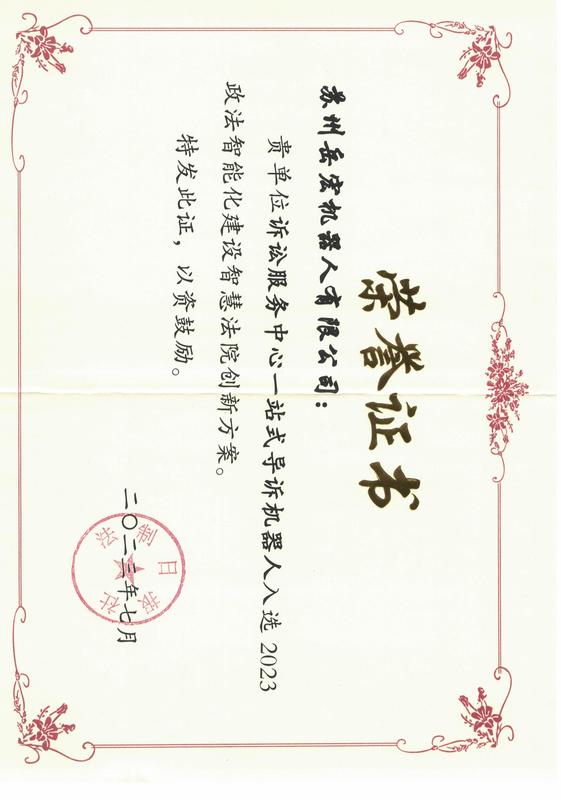 荣誉证书
苏州岳宏机器人有限公司：
贵单位诉讼服务中心一站式导诉机器人入选2023
政法智能化建设智慧法院创新方案。
特发此证，以资鼓励。
法制日报社
二〇二三年七月